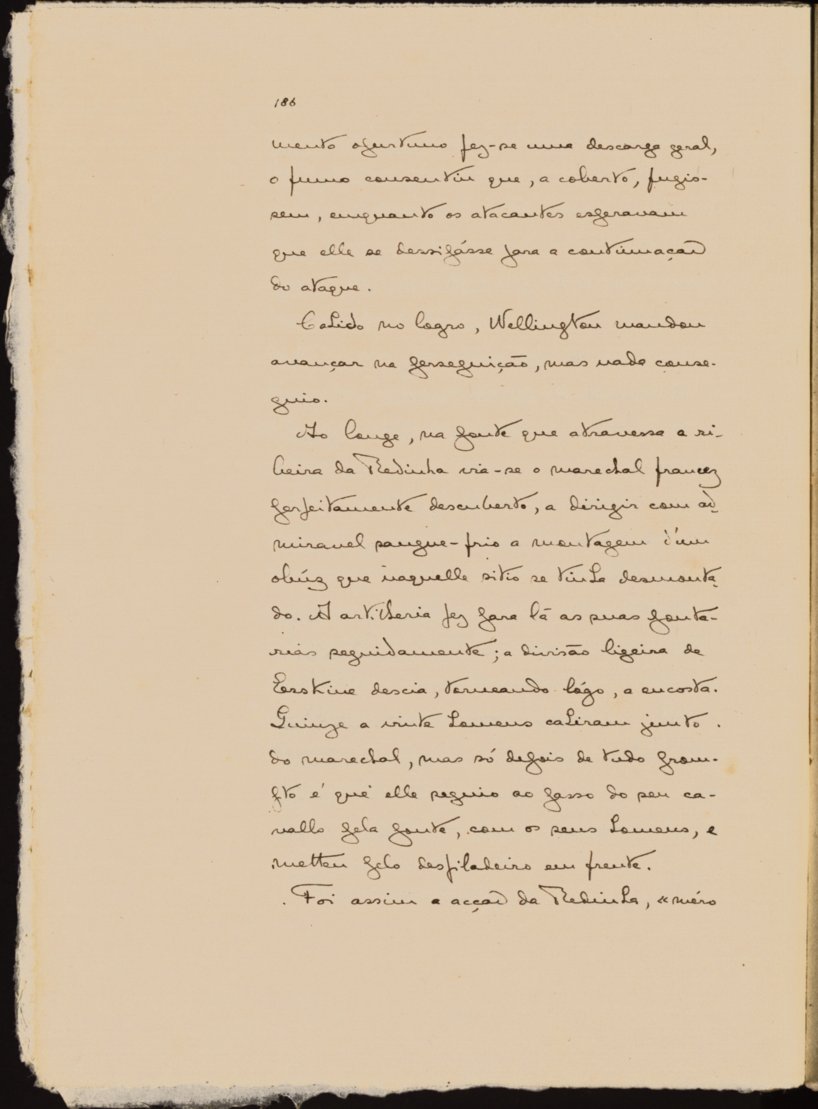 186
mento opurtuno fez-se uma descarga geral,
o fumo consentiu que, a coberto, fugis-
sem, emquanto os atacantes esperavam
que elle se dessipásse para a continuação
do ataque.
Cahido no logro, Wellington mandou
avançar na perseguição, mas nada conse-
guio.
Ao longe, na ponte que atravessa a ri-
beira da Redinha via-se o marechal francez
perfeitamente descuberto, a dirigir com ad-
miravel sangue-frio a montagem d'um
obúz que naquelle sitio se tinha desmonta-
do. A artilheria fez para lá as suas ponta-
rias seguidamente; a divisão ligeira de
Erskine descia, torneando lógo, a encosta.
Quinze a vinte homens cahiram junto
do marechal, mas só depois de tudo prom-
pto é que elle seguio ao passo do seu ca-
vallo pela ponte, com os seus homens, e
metteu pelo desfiladeiro em frente.
Foi assim a acção da Redinha, «méro